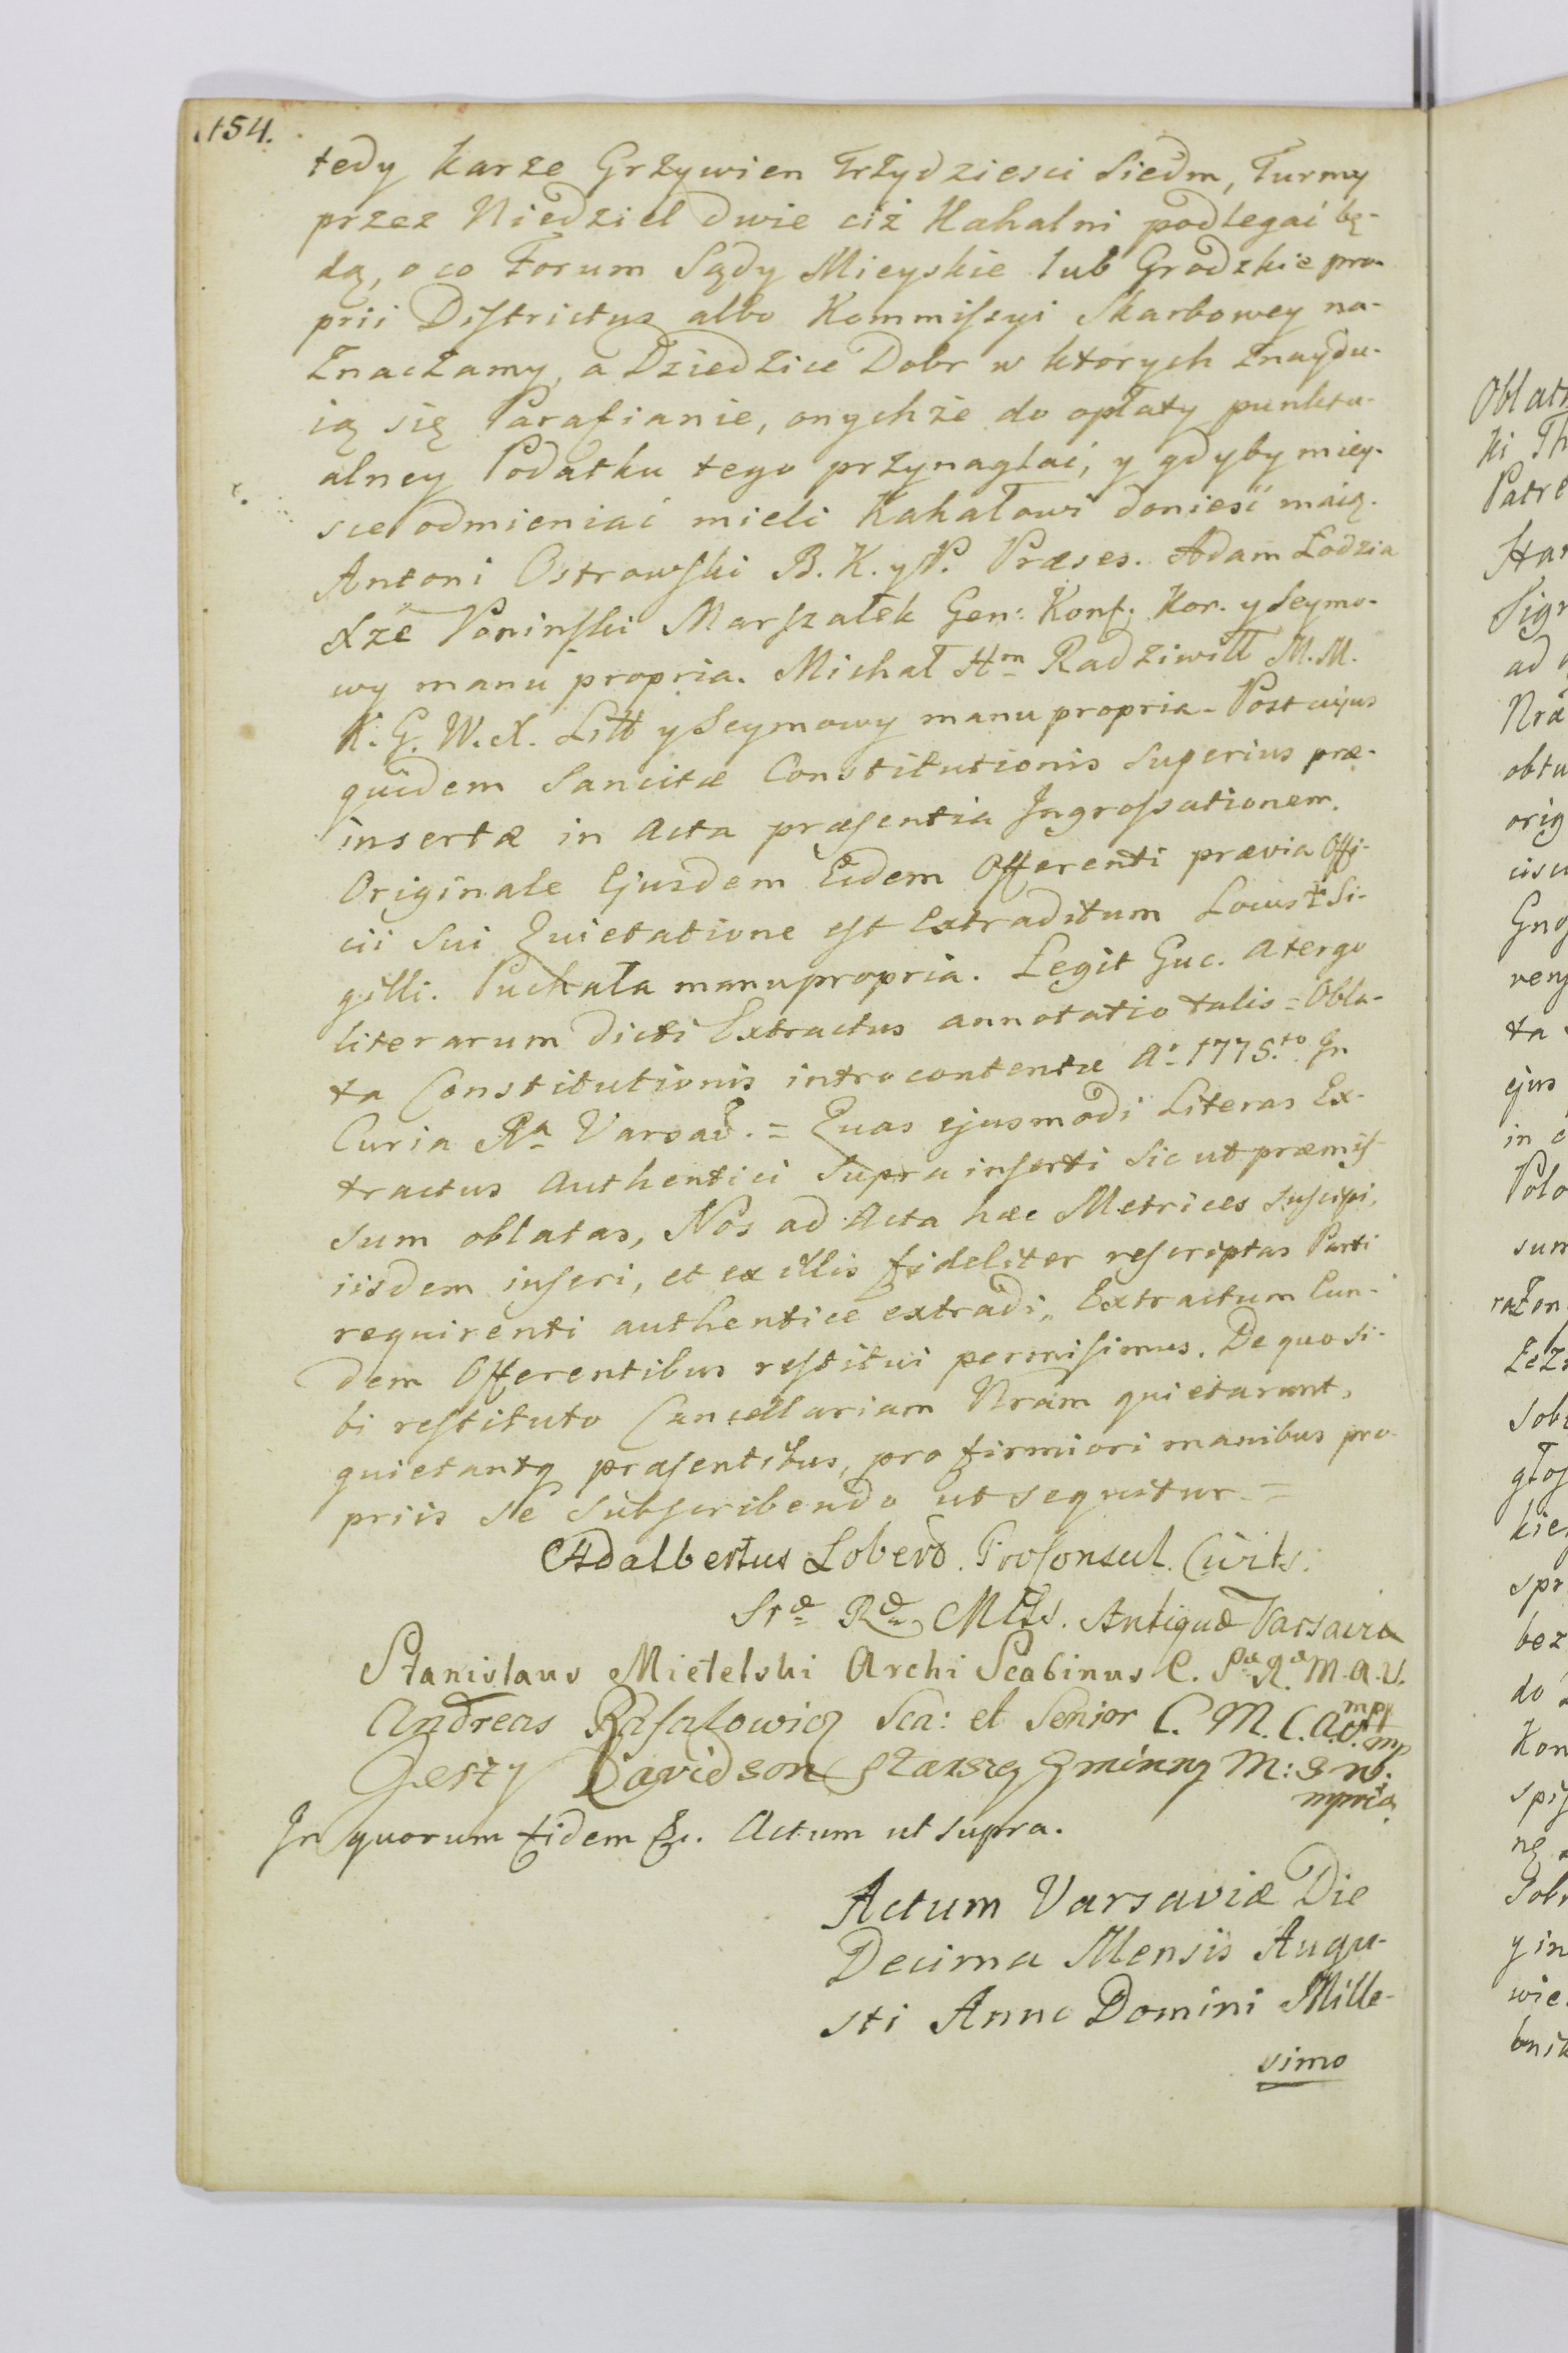 154.
tedy karze Grzywien Trzydziesci Siedm, Turmy
przez Niedziel dwie ciż Kahalni podlegać bę-
dą, o co Forum Sądy Mieyskie lub Grodzkie pro-
prii Districtus albo Kommissyi Skarbowey na-
znaczamy, a Dziedzice Dobr w ktorych znaydu-
ią się Parafianie, onychże do opłaty punktu-
alney Podatku tego przynaglać, y gdyby miey-
sce odmieniać mieli Kahałowi donieść maią.
Antoni Ostrowski B. K. y P. Præses. Adam Łodzia
Xże Poninski Marszałek Gen: Konf: Kor. y Seymo-
wy manu propria. Michał Hrn Radziwiłł M. M.
K. G. W. X. Litt y Seymowy manu propria. Post cujus
quidem Sancitæ Constitutionis superius præ-
insertæ in Acta præsentia Ingrossationem.
Originale Ejusdem Eidem Offerenti prævia Offi-
cii sui Quietatione est extraditum Locus Si-
gilli. Puchała manu propria. Legit Guc. A tergo
literarum dicti Extractus annotatio talis = Obla-
ta Constitutionis introcontentæ Ao 1775.to In
Curia Ra Varsav. = Quas ejusmodi Literas Ex-
tractus Authentici supra inserti sic ut præmis-
sum oblatas, Nos ad Acta hæc Metrices suscipi,
iisdem inseri, et ex illis fideliter rescriptas Parti
requirenti authentice extradi, Extractum Eun-
dem Offerentibus restitui permisimus. De quo si-
bi restituto Cancellariam Nram quietarunt,
quietantq præsentibus, pro firmiori manibus pro-
priis se subscribendo ut sequitur. =
Adalbertus Loberd. Proconsul. Civits.
Sræ Ræ Mtis. Antiquæ Varsaviæ
Stanislaus Mietelski Archi Scabinus C. Sæ Ræ M. A. V.
Andreas Rafałowicz Sca: et Senior C. M. C. A. V. mp
Jerzy Davidson Starszy Gminny M: S W.
mpria
In quorum fidem &c. Actum ut supra.
Actum Varsaviæ Die
Decima Mensis Augu-
sti Anno Domini Mille-
simo
Oblat
ki Th
Patre
Sign
ad
Nra
obtu
orig
Gno
ta
ejus
in
Polo
sum
kie
spr
bez
do
Kon
spis
nę
y in
wie